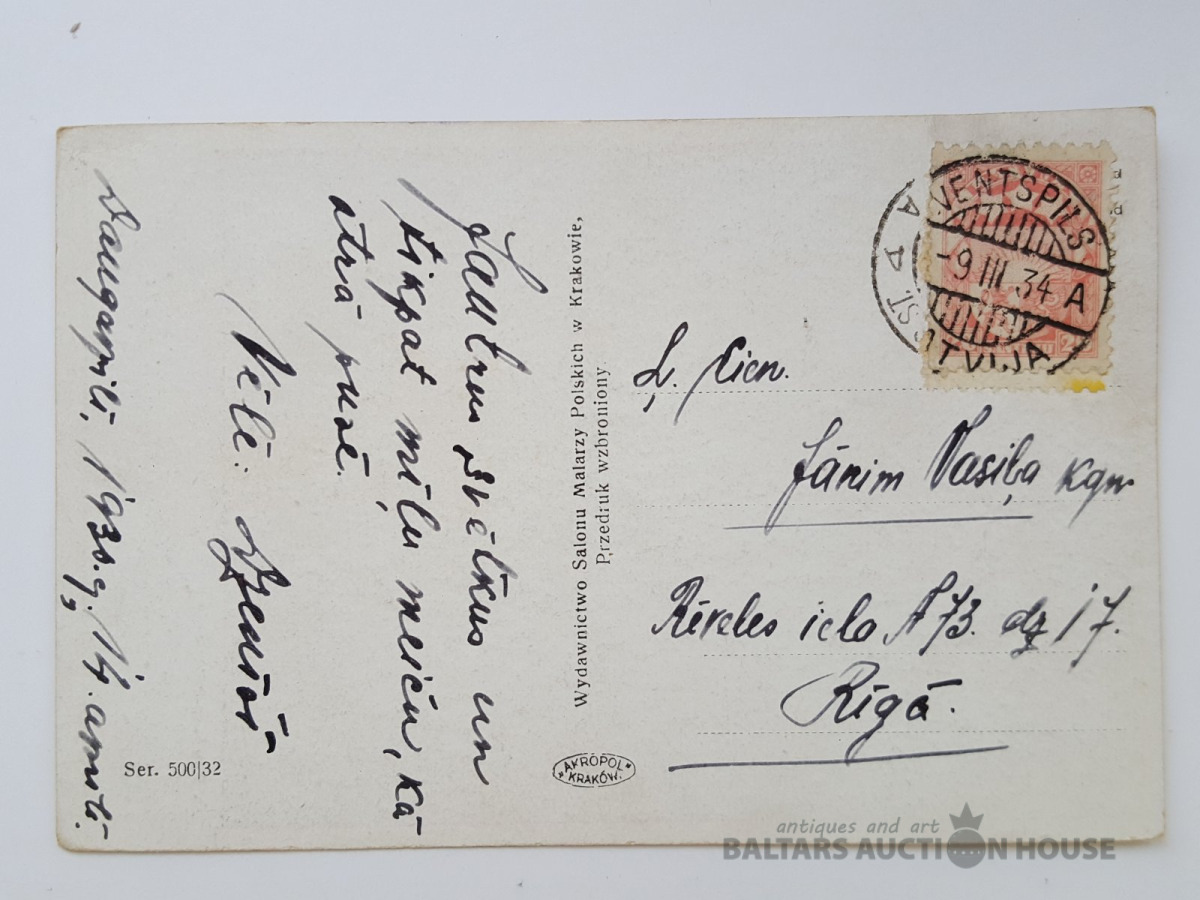 Jautrus svētkus un
tikpat miļu meiču, kā
otrā pusē.
Vēlē:
Daugavpilī, 193 .g. 14. aprīlī.
Ser. 500|32
Wydawnictwo Salonu Malarzy Polskich w Krakowie,
Przedruk wzbroniony.
AKROPOL
KRAKÓW.
VENTSPILS
-9 III 34 A
LATVIJA
Ļ. Cien.
Jānim Vasiļa kgm
ielā № 73. dz 17.
Rīgā.
antiques and art
BALTARS AUCTION HOUSE